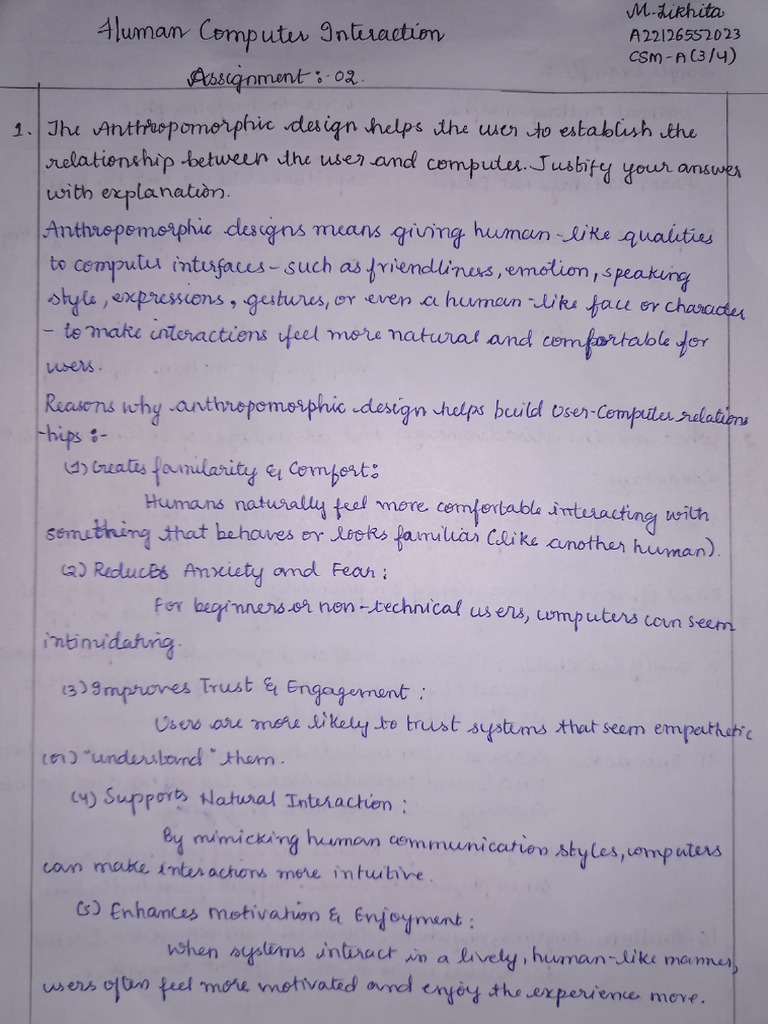 Human Computer Interaction
M. Likhita
A22126552023
CSM-A (3/4)
Assignment :- 02.
1. The Anthropomorphic design helps the user to establish the
relationship between the user and computer. Justify your answer
with explanation.
Anthropomorphic designs means giving human-like qualities
to computer interfaces - such as friendliness, emotion, speaking
style, expressions, gestures, or even a human-like face or character
- to make interactions feel more natural and comfortable for
users.
Reasons why anthropomorphic design helps build User-Computer relations
-hips :-
(1) Creates familarity & Comfort:
Humans naturally feel more comfortable interacting with
something that behaves or looks familiar (like another human).
(2) Reduces Anxiety and Fear:
For beginners or non-technical users, computers can seem
intimidating.
(3) Improves Trust & Engagement :
Users are more likely to trust systems that seem empathetic
(or) "understand" them.
(4) Supports Natural Interaction :
By mimicking human communication styles, computers
can make interactions more intuitive.
(5) Enhances motivation & Enjoyment :
When systems interact in a lively, human-like manner,
users often feel more motivated and enjoy the experience more.